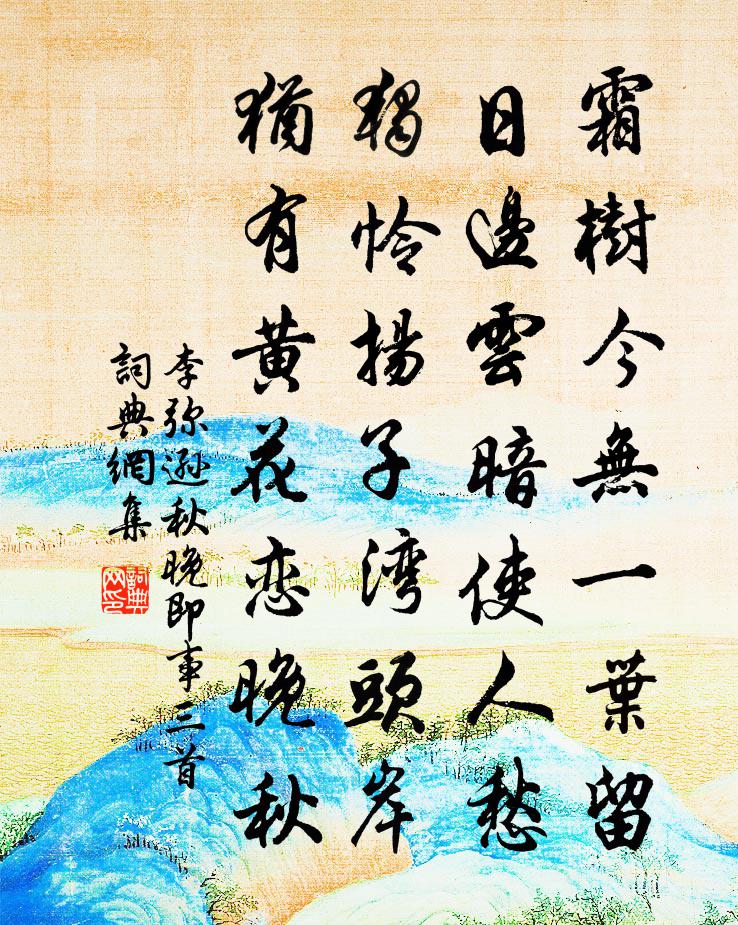 霜樹今無一葉留
日邊雲暗使人愁
獨怜揚子湾頭岸
猶有黄花恋晚秋
李弥遜秋晚即事三首
詞典網集
詞典网印